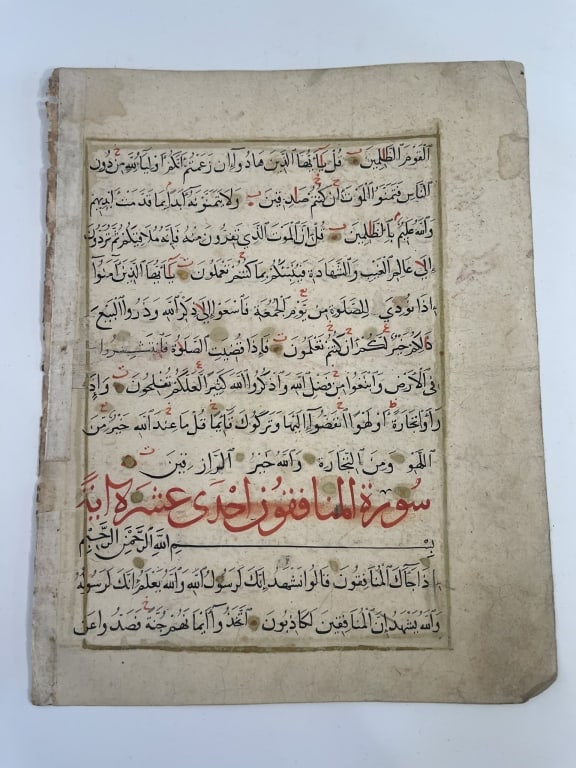 القوم الظلمين قل يا يها الذين هادوا ان زعمتم انكم اوليا لله من دون
الناس فتمنوا الموت ان كنتم صادقين ولا يتمنونه ابدا بما قدمت ايديهم
والله عليم بالظلمين قل ان الموت الذي تفرون منه فانه ملاقيكم ثم تردون
الى عالم الغيب والشهادة فينبئكم بما كنتم تعملون يا يها الذين آمنوا
اذا نودي للصلوة من يوم الجمعة فاسعوا الى ذكر الله وذروا البيع
ذلكم خير لكم ان كنتم تعلمون فاذا قضيت الصلوة فانتشروا
فى الارض وابتغوا من فضل الله واذكروا الله كثيرا لعلكم تفلحون واذا
رأوا تجارة او لهوا انفضوا اليها وتركوك قائما قل ما عند الله خير من
اللهو ومن التجارة والله خير الرازقين
سورة المنافقون احدى عشرة آية
بسم الله الرحمن الرحيم
اذا جاك المنافقون قالوا نشهد انك لرسول الله والله يعلم انك لرسوله
والله يشهد ان المنافقين لكاذبون اتخذوا ايمانهم جنة فصدوا عن